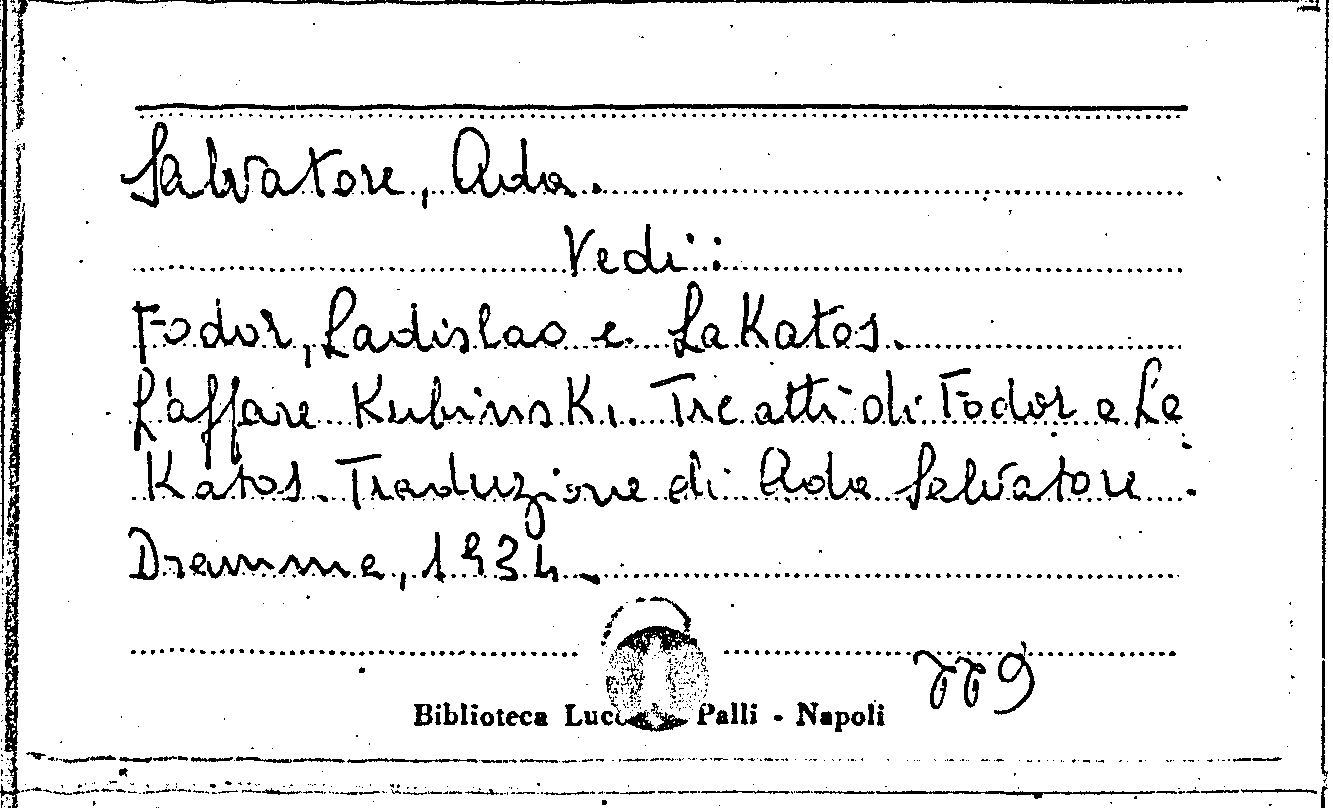 Salvatore, Ada.
Vedi:
Fodor, Ladislao e Lakatos.
L'affare Kubinski. Tre atti di Fodor e La
Katos. Traduzione di Ada Salvatore.
Dramma, 1934.
779
Biblioteca Palli - Napoli